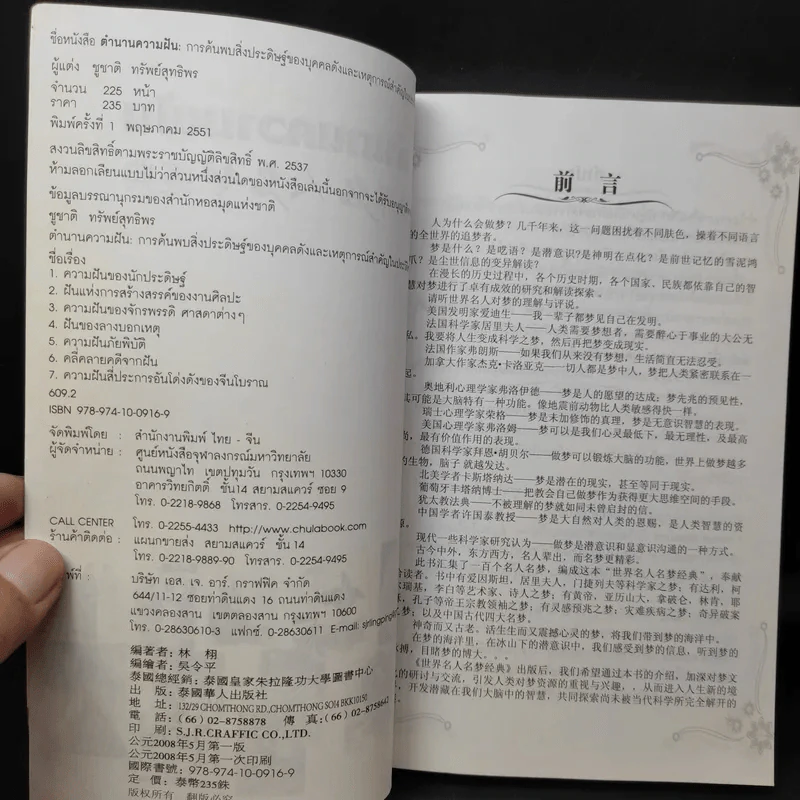 ชื่อหนังสือ ตำนานความฝัน: การค้นพบสิ่งประดิษฐ์ของบุคคลดังและเหตุการณ์สำคัญใน
ผู้แต่ง ชูชาติ ทรัพย์สุทธิพร
จำนวน 225 หน้า
ราคา 235 บาท
พิมพ์ครั้งที่ 1 พฤษภาคม 2551
สงวนลิขสิทธิ์ตามพระราชบัญญัติลิขสิทธิ์ พ.ศ. 2537
ห้ามลอกเลียนแบบไม่ว่าส่วนหนึ่งส่วนใดของหนังสือเล่มนี้นอกจากจะได้รับ
ข้อมูลบรรณานุกรมของสำนักหอสมุดแห่งชาติ
ชูชาติ ทรัพย์สุทธิพร
ตำนานความฝัน: การค้นพบสิ่งประดิษฐ์ของบุคคลดังและเหตุการณ์สำคัญใน
ชื่อเรื่อง
1. ความฝันของนักประดิษฐ์
2. ฝันแห่งการสร้างสรรค์ของงานศิลปะ
3. ความฝันของจักรพรรดิ ศาสดาต่างๆ
4. ฝันของลางบอกเหตุ
5. ความฝันภัยพิบัติ
6. คลี่คลายคดีจากฝัน
7. ความฝันสี่ประการอันโด่งดังของจีนโบราณ
609.2
ISBN 978-974-10-0916-9
จัดพิมพ์โดย : สำนักงานพิมพ์ ไทย - จีน
ผู้จัดจำหน่าย : ศูนย์หนังสือจุฬาลงกรณ์มหาวิทยาลัย
ถนนพญาไท เขตปทุมวัน กรุงเทพฯ 10330
อาคารวิทยกิตติ์ ชั้น14 สยามสแควร์ ซอย 9
โทร. 0-2218-9868 โทรสาร. 0-2254-9495
CALL CENTER โทร. 0-2255-4433 http://www.chulabook.com
ร้านค้าติดต่อ : แผนกขายส่ง สยามสแควร์ ชั้น 14
โทร. 0-2218-9889-90 โทรสาร. 0-2254-9495
พ์ที่ : บริษัท เอส. เจ. อาร์. กราฟฟิค จำกัด
644/11-12 ซอยท่าดินแดง 16 ถนนท่าดินแดง
แขวงคลองสาน เขตคลองสาน กรุงเทพฯ 10600
โทร. 0-28630610-3 แฟกซ์. 0-28630611 E-mail:
編著者: 林 栩
編繪者: 吳令平
泰國總經銷: 泰國皇家朱拉隆功大學圖書中心
出 版: 泰國華人出版社
地址: 132/29 CHOMTHONG RD.,CHOMTHONG SOI4 BKK10150
電話: (66) 02-8758878 傳 真: (66) 02-8758642
印 刷: S.J.R.CRAFFIC CO.,LTD.
公元2008年5月第一版
公元2008年5月第一次印刷
國際書號: 978-974-10-0916-9
定 價: 泰幣235銖
版权所有 翻版必究
前 言
人为什么会做梦？几千年来，这一问题困扰着不同肤色，操着不同语言
的全世界的追梦者。
梦是什么？是呓语？是潜意识?是神明在点化？是前世记忆的雪泥鸿
爪？是尘世信息的变异解读？
在漫长的历史过程中，各个历史时期，各个国家、民族都依靠自己的智
慧对梦进行了卓有成效的研究和解读探索。
请听世界名人对梦的理解与评说。
美国发明家爱迪生——我一辈子都梦见自己在发明。
法国科学家居里夫人——人类需要梦想者，需要醉心于事业的大公无
私。我要将人生变成科学之梦，然后再把梦变成现实。
法国作家弗朗斯——如果我们从来没有梦想，生活简直无法忍受。
加拿大作家杰克·卡洛亚克——一切人都是梦中人，梦把人类紧密联系在一
起。
奥地利心理学家弗洛伊德——梦是人的愿望的达成；梦先兆的预见性，
其可能是大脑特有一种功能。像地震前动物比人类敏感得快一样。
瑞士心理学家荣格——梦是未加修饰的真理，梦是无意识智慧的表现。
美国心理学家弗洛姆——梦可以是我们心灵最低下，最无理性，及最高
尚，最有价值作用的表现。
德国科学家拜恩·胡贝尔——做梦可以锻炼大脑的功能，世界上做梦越多
的生物，脑子 就越发达。
北美学者卡斯塔纳达——梦是潜在的现实，甚至等同于现实。
葡萄牙丰塔纳博士——把教会自己做梦作为获得更大思维空间的手段。
犹太教法典——不被理解的梦就如同未曾启封的信。
中国学者许国泰教授——梦是大自然对人类的恩赐，是人类智慧的资
源。
现代一些科学家研究认为——做梦是潜意识和显意识沟通的一种方式。
古今中外，东方西方，名人辈出，而名梦更精彩。
此书汇集了一百个名人名梦，编成这本“世界名人名梦经典”，奉献
给读者。书中有爱因斯坦，居里夫人，门捷列夫等科学家之梦；有达利，柯
瑞基，李白等艺术家、诗人之梦；有黄帝，亚历山大，拿破仑，林肯，耶
稣，孔子等帝王宗教领袖之梦；有灵感预兆之梦；灾难疾病之梦；奇异破案
梦；以及中国古代四大名梦。
神奇而又古老，活生生而又震撼心灵的梦，将我们带到梦的海洋中。
在梦的海洋里，在冰山下的潜意识中，让我们感受到梦的信息，听到梦的
搏，目睹梦的博大、。。。
《世界名人名梦经典》出版后，我们希望通过本书的介绍，加深对梦文
的研讨与交流，引发人类对梦资源的重视与兴趣，，从而进入人生新的境
，开发潜藏在我们大脑中的智慧，共同探索尚未被当代科学所完全解开的